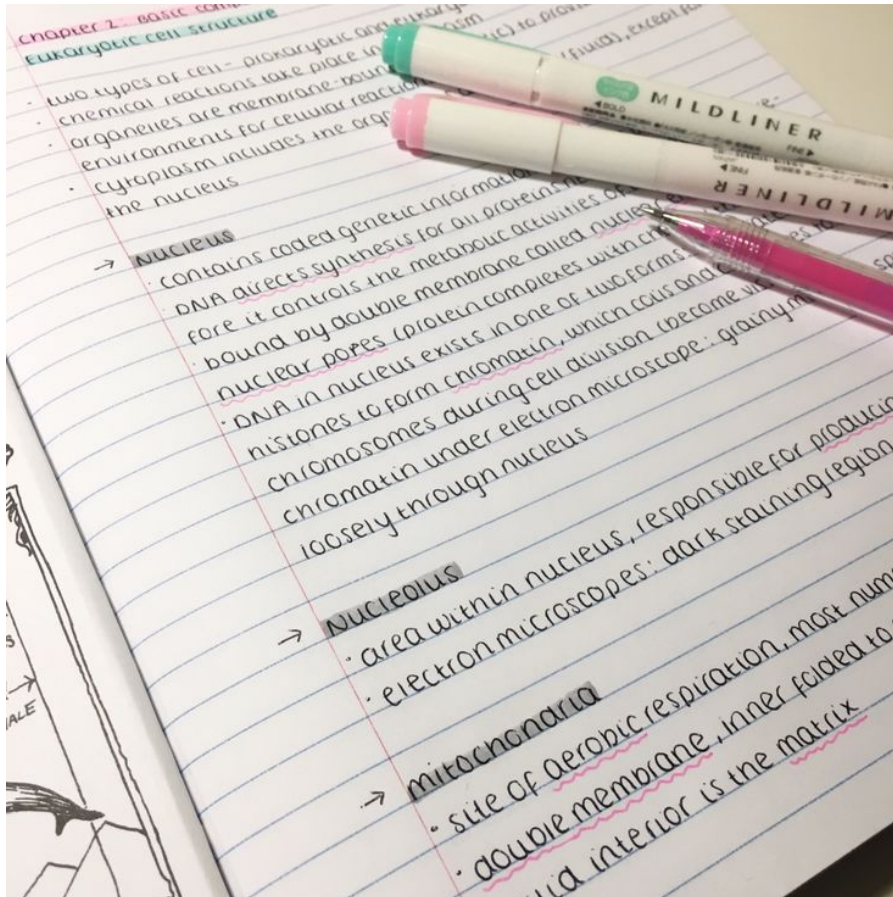 Chapter 2: Basic
Eukaryotic cell structure
· two types of cell - prokaryotic and
· chemical reactions take place in
· organelles are membrane-bound
environments for cellular
(fluid), except for
· cytoplasm includes the
the nucleus
→ Nucleus
· contains coded genetic
· DNA directs synthesis for all proteins
fore it controls the metabolic activities of
· bound by double membrane called nuclear
nuclear pores (protein complexes with
· DNA in nucleus exists in one of two forms:
histones to form chromatin, which coils and
chromosomes during cell division (become
chromatin under electron microscope: grainy
loosely through nucleus
→ Nucleolus
· area within nucleus, responsible for
· electron microscopes: dark staining region
→ mitochondria
· site of aerobic respiration, most
· double membrane, inner folded to
interior is the matrix
◄BOLD MILDLINER
FINE►
FINE► MILDLINER